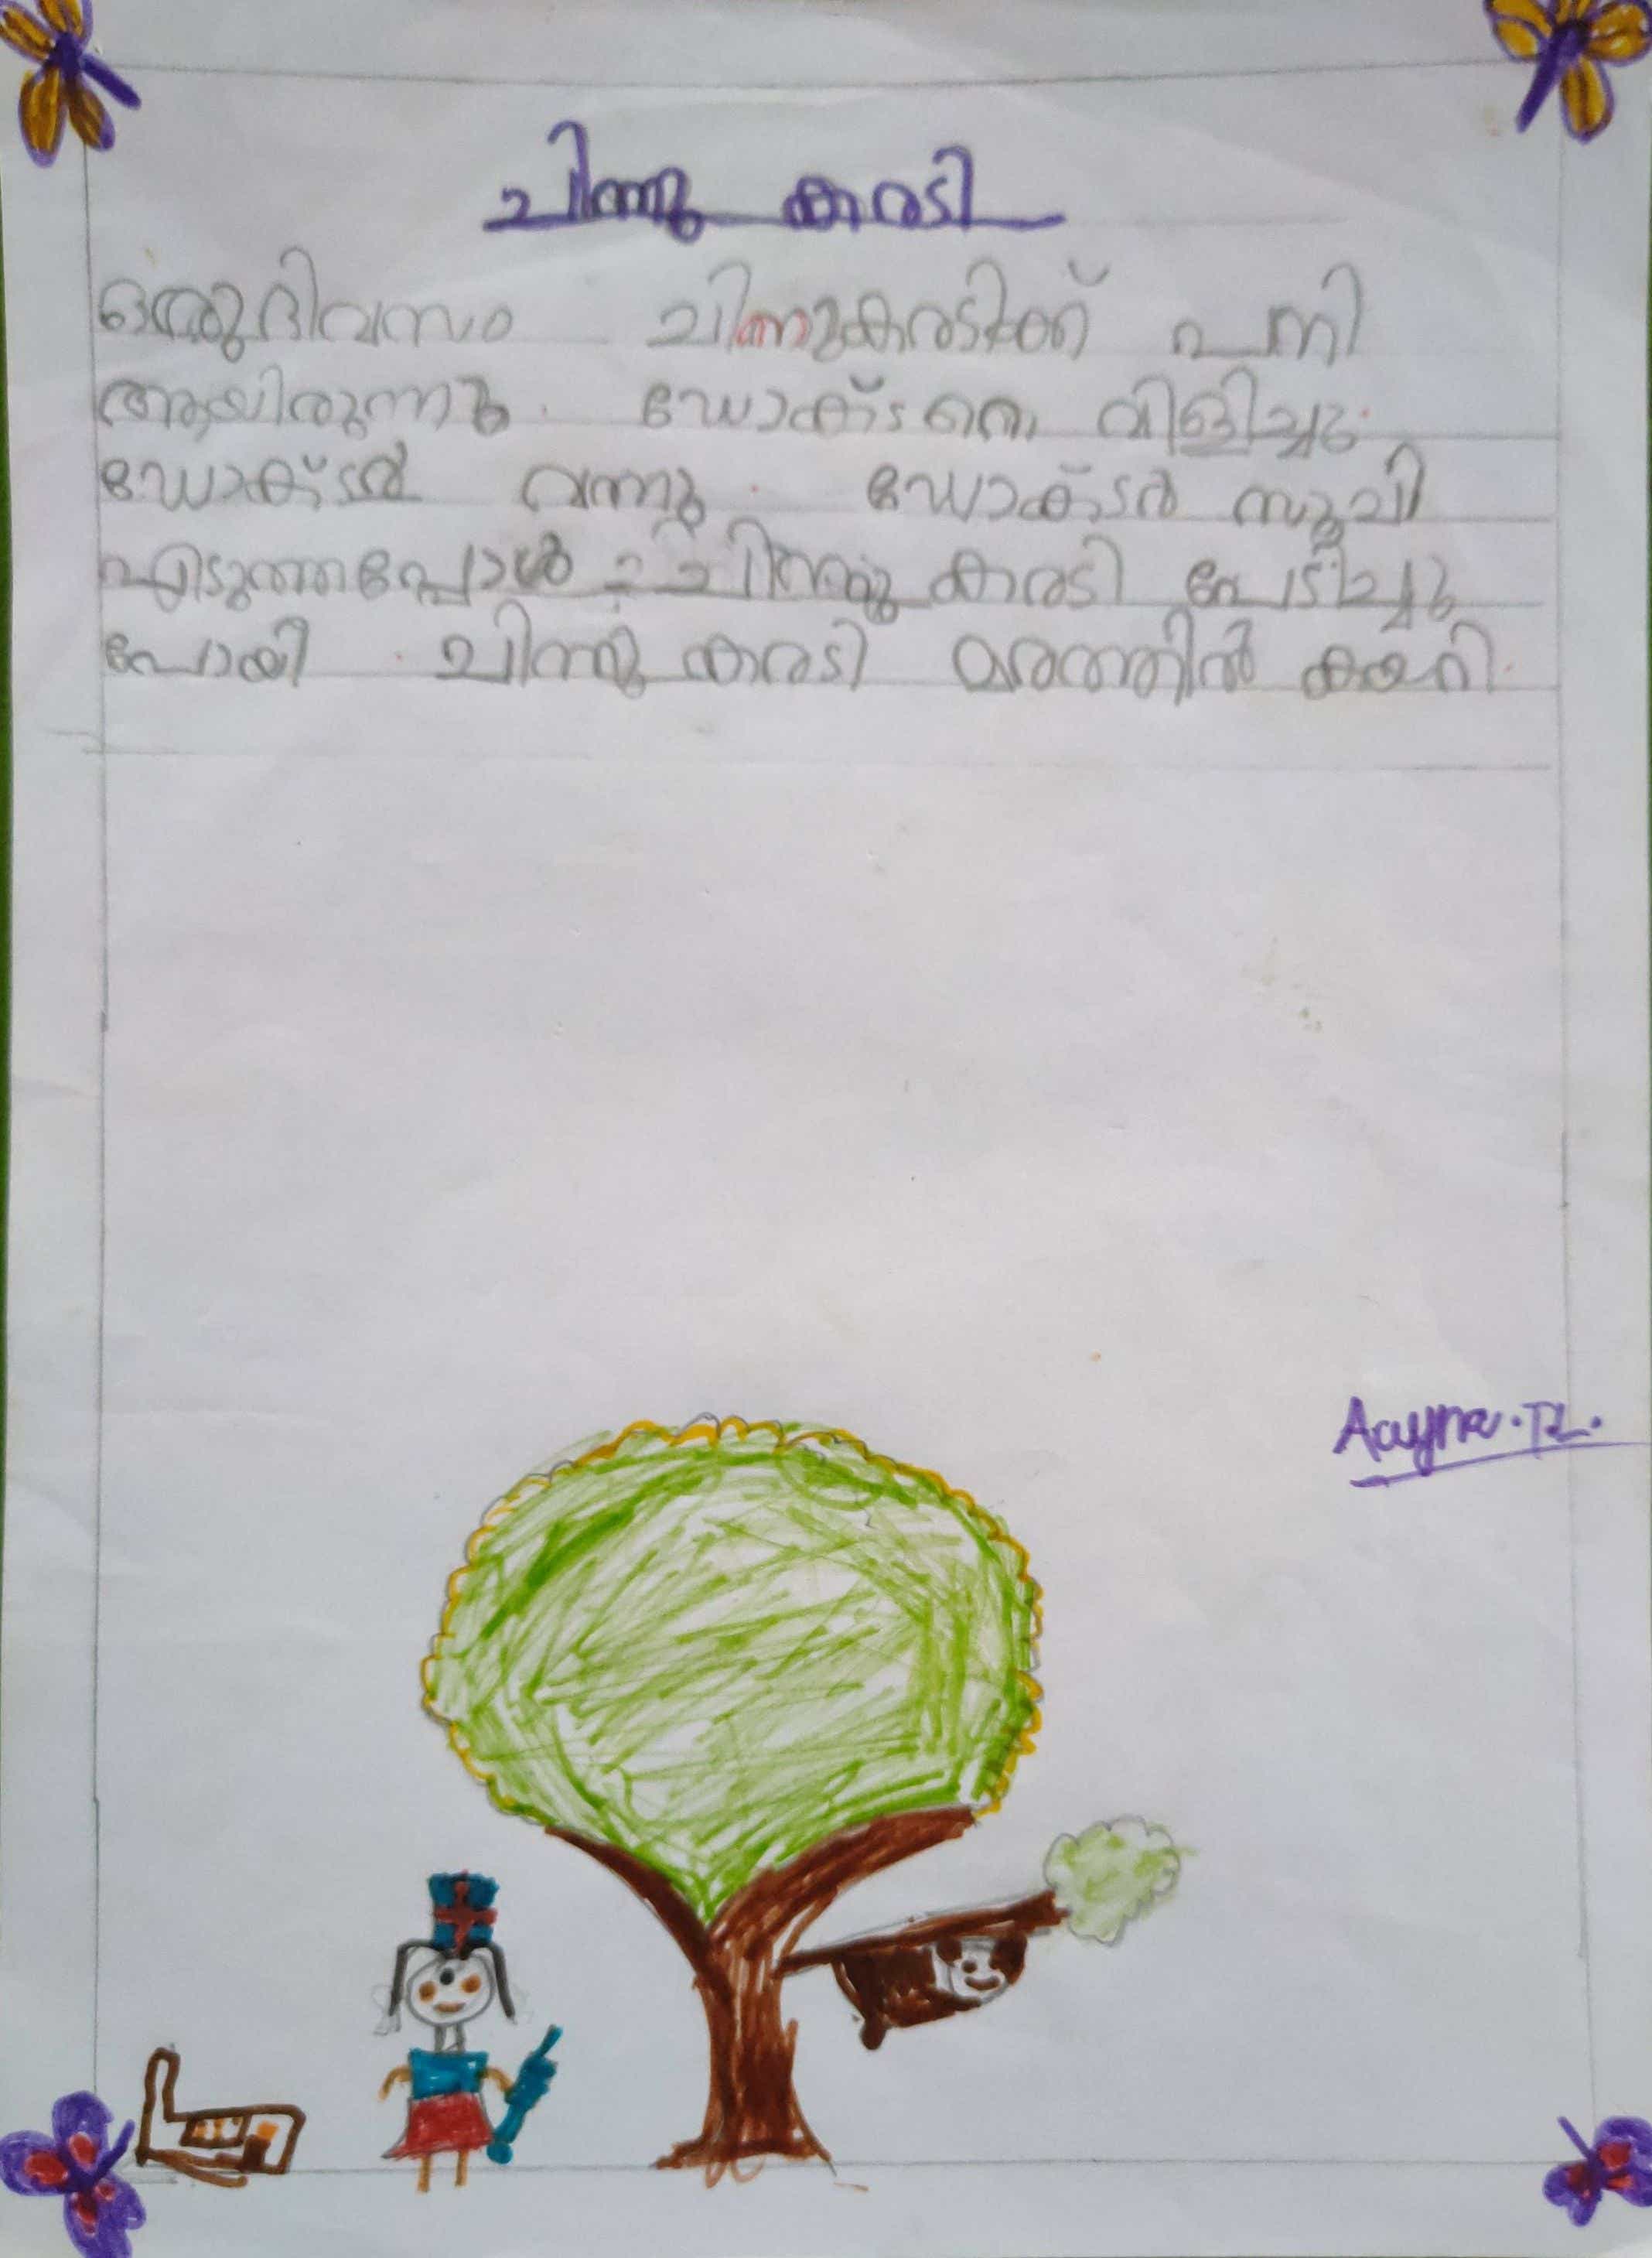 ചിന്നു കരടി
ഒരുദിവസം ചിന്നുകരടിക്ക് പനി
ആയിരുന്നു. ഡോക്ടറെ വിളിച്ചു.
ഡോക്ടർ വന്നു. ഡോക്ടർ സൂചി
എടുത്തപ്പോൾ ചിന്നു കരടി പേടിച്ചു
പോയി. ചിന്നു കരടി മരത്തിൽ കയറി.